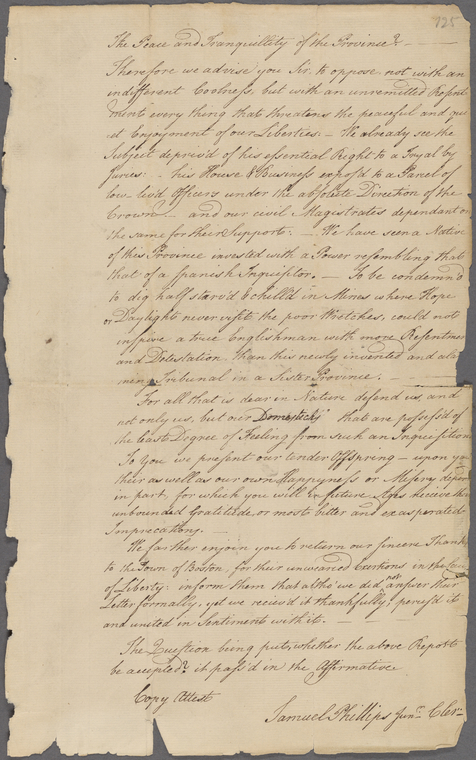 125
The Peace and Tranquillety of the Province? —
Therefore we advise you Sir. to oppose not with an
indifferent Coolness, but with an unremitted Resent
ment every thing that threatens the peaceful and qui
et Enjoyment of our Liberties: — We already see the
Subject depriv'd of his essential Right to a Tryal by
Jures: - his House & Business expos'd to a Parcel of
low-liv'd Officers under the absolute Direction of the
Crown — and our civil Magistrates dependant on
the same for their Support: — We have seen a Native
of this Province invested with a Power resembling that
that of a Spanesh Inquisitor. — To be condemn'd
to dig half starv'd & chill'd in Mines where Hope
or Daylight never visit the poor Wretches, could not
inspire a true Englishman with more Resentmen
and Detestation. Than this newly invented and alar
ming Tribunal in a Sister Province. —
For all that is dear in Nature defend us, and
not only us, but our Domesticks that are possess'd of
the least Degree of Feeling from such an Inquisition
To you we present our tender Offspring — upon you
their as well as our own Happyness or Misery depen
in part, for which you will in future Ages receive their
unbounded Gratitude, or most bitter and exasperated
Imprecations. —
We farther enjoin you to return our sincere Thanks
to the Town of Boston, for their unwearied Exertions in the Cause
of Liberty: inform them that altho' we did not answer their
Letter formally, yet we receiv'd it thankfully, perus'd it
and united in Sentiment with it. — — —
The Question being put, whether the above Report
be accepted? it pass'd in the Affirmative
Copy Attest
Samuel Phillips Junr. Cler